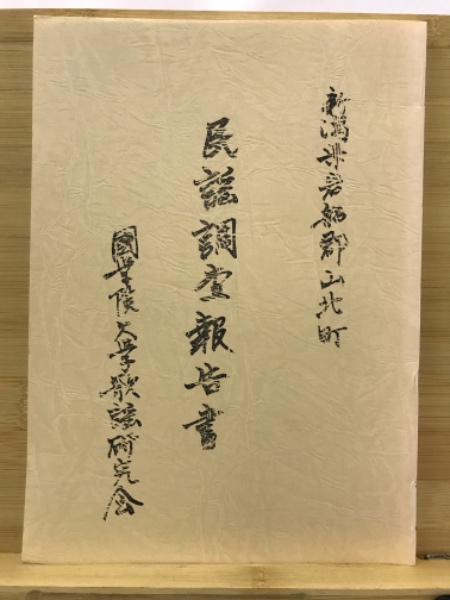 新潟県岩船郡山北町
民謡調査報告書
國學院大学歌謡研究会